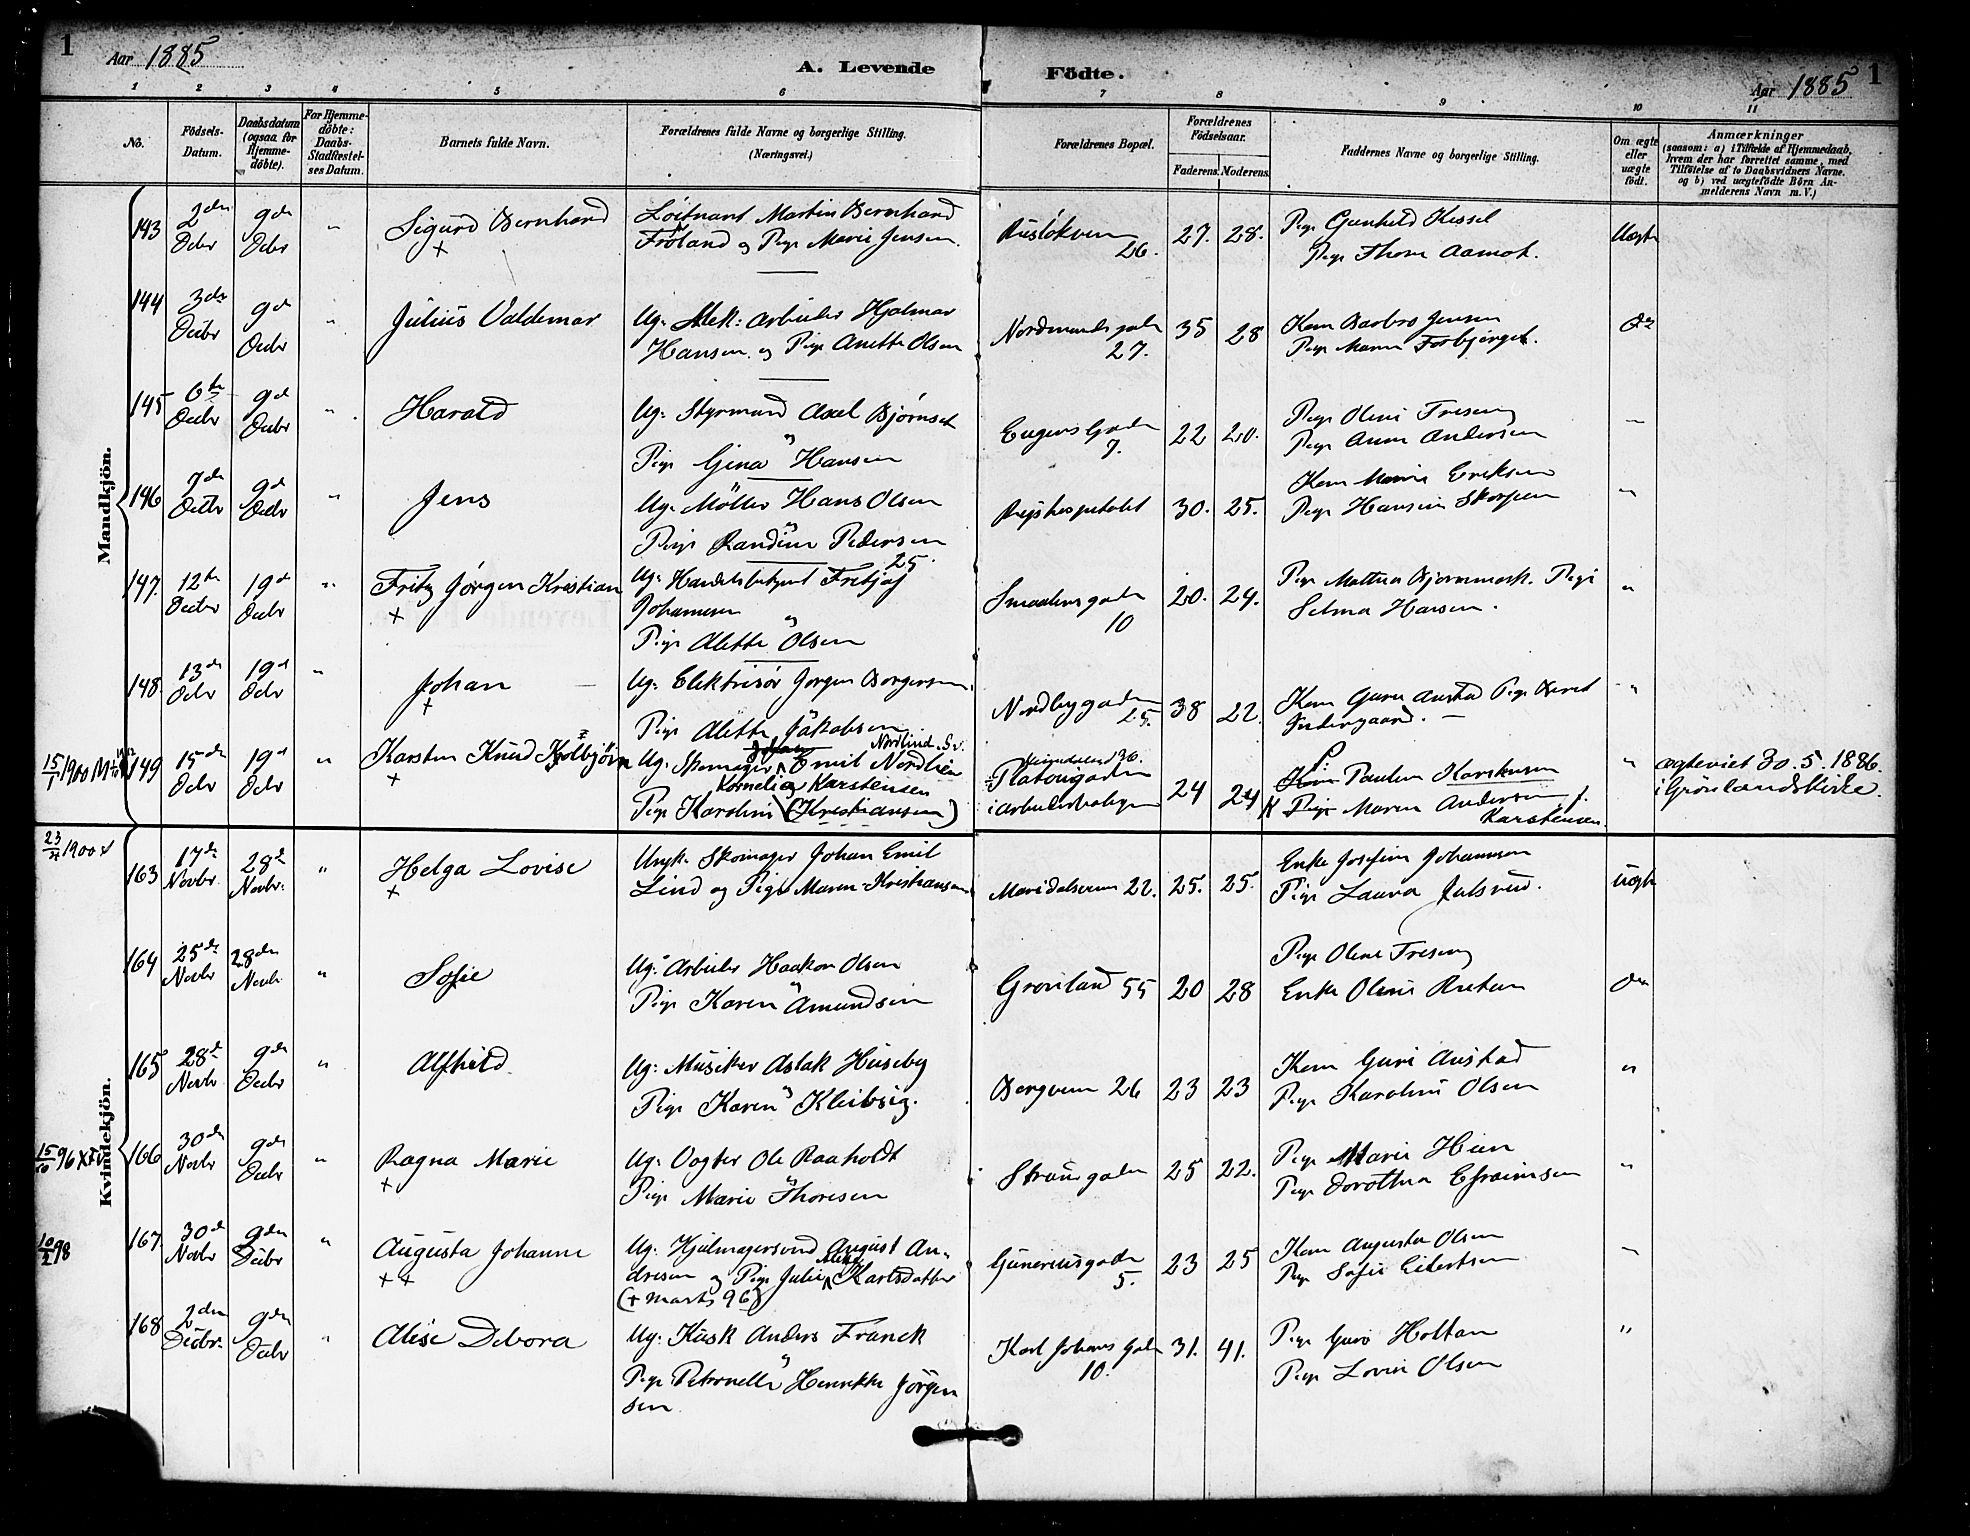 1
Aar 1885
A. Levende Födte.
Aar 1885 1
1 2 3 4 5 6 7 8 9 10 11
No.
Födsels-Datum.
Daabsdatum (ogsaa for Hjemme-döbte).
For Hjemme-döbte: Daabs-Stadfæstel-ses Datum.
Barnets fulde Navn.
Forældrenes fulde Navne og borgerlige Stilling. (Næringsvei.)
Forældrenes Bopæl.
Forældrenes Födselsaar.
Faderens. Moderens.
Faddernes Navne og borgerlige Stilling.
Om ægte eller uægte födt.
Anmærkninger
(saasom: a) i Tilfælde af Hjemmedaab, hvem der har forrettet samme, med Tilföielse af to Daabsvidners Navne. og b) ved uægtefödte Börn An-melderens Navn m. V.)
Mandkjön.
143 2den Decbr 9de Decbr " Sigurd Bernhard + Löitnant Martin Bernhard
Fröland og Pige Marie Jensen. 26. 27. 28. Pige Gunhild Kessel
Pige Thora Aamot. Uægte
144 3die Decbr 9de Decbr " Julius Valdemar Ug. Mek: Arbeider Hjalmar
Hansen og Pige Anette Olsen Nordmandsgaden 27. 35 28 Kone Barbro Jensen
Pige Maren Do
145 6te Decbr 9de Decbr " Harald Ug: Styrmand Axel Bjørnset
Pige Gina Hansen Eugens Gade 7. 22 20. Pige Oline
Pige Anna Andersen "
146 7de Decbr 9de Decbr " Jens Ug. Möller Hans Olsen
Pige Randine Pedersen Righospitalet 30. 25. Kone Marie Eriksen
Pige Hansine "
147. 12te Decbr 19de Decbr " Fritz Jörgen Kristian + Ug. Handelsbetjent Fritjof 25.
Johannesen
Pige Alette Olsen Smaalensgaden 10 20. 24. Pige Mathea Pige
Selma Hansen. "
148. 13de Decbr 19de Decbr " Johan + Ug: Elektrisör Jörgen Borgersen.
Pige Alette Jakobsen Nordbygaden 25. 38 22. Kone Guri Austad Pige Beret "
15/1 1900 149 15de Decbr 19de Decbr " Karsten Knud Kolbjörn + Ug. Skomager Johan Emil Nordlien Nordlind
Pige Karoline Kornelia Karstensen (Kristiansen) Platougaden
i Arbeiderboligen 24 24 Kone Pauline Karstensen
Pige Maren Andersen f. Karstensen. " ægteviet 30. 5. 1886.
i Grönlands Kirke.
Kvindekjön.
23/4 1900 163 17de Novbr 28de Novbr: " Helga Lovise + Ungk. Skomager Johan Emil
Lind og Pige Maren Kristiansen Maridalsveien 22. 25. 25. Enke Josefine Johannesen
Pige Laura Julsrud. Uægte
164 25de Novbr 28den Novbr " Sofie Ug: Arbeider Haakon Olsen
Pige Karen Amundsen Grönland 55 20 28 Pige Oline
Enke Oline Do
165 28de Novbr 9de Decbr " Alfhild. Ug: Musiker Aslak Huseby
Pige Karen Kleibsig. Bergveien 26 23 23 Kone Guri Austad
Pige Karoline Olsen "
15/10 96 166 30de Novbr 9de Decbr " Ragna Marie + Ug: Vogter Ole Raaholdt
Pige Marie Thoresen 25 22. Pige Marie Hien
Pige Dorothea Efraimsen "
10/2 98 167. 30de Novbr 9den Decbr " Augusta Johanne ++ Ug: Hjulmagersvend August An-
dresen og Pige Julie Karlsdatter
(+ Marts 96) Guneriusgaden 5. 23 25 Kone Augusta Olsen
Pige Sofie Eilertsen "
168 2den Decbr. 9den Decbr " Alise Debora Ug: Kusk Anders Franck
Pige Petronelle Henrikke Jörgen
sen. Karl Johans Gade 10. 31. 41. Pige Guro Holtan
Pige Lovise Olsen "